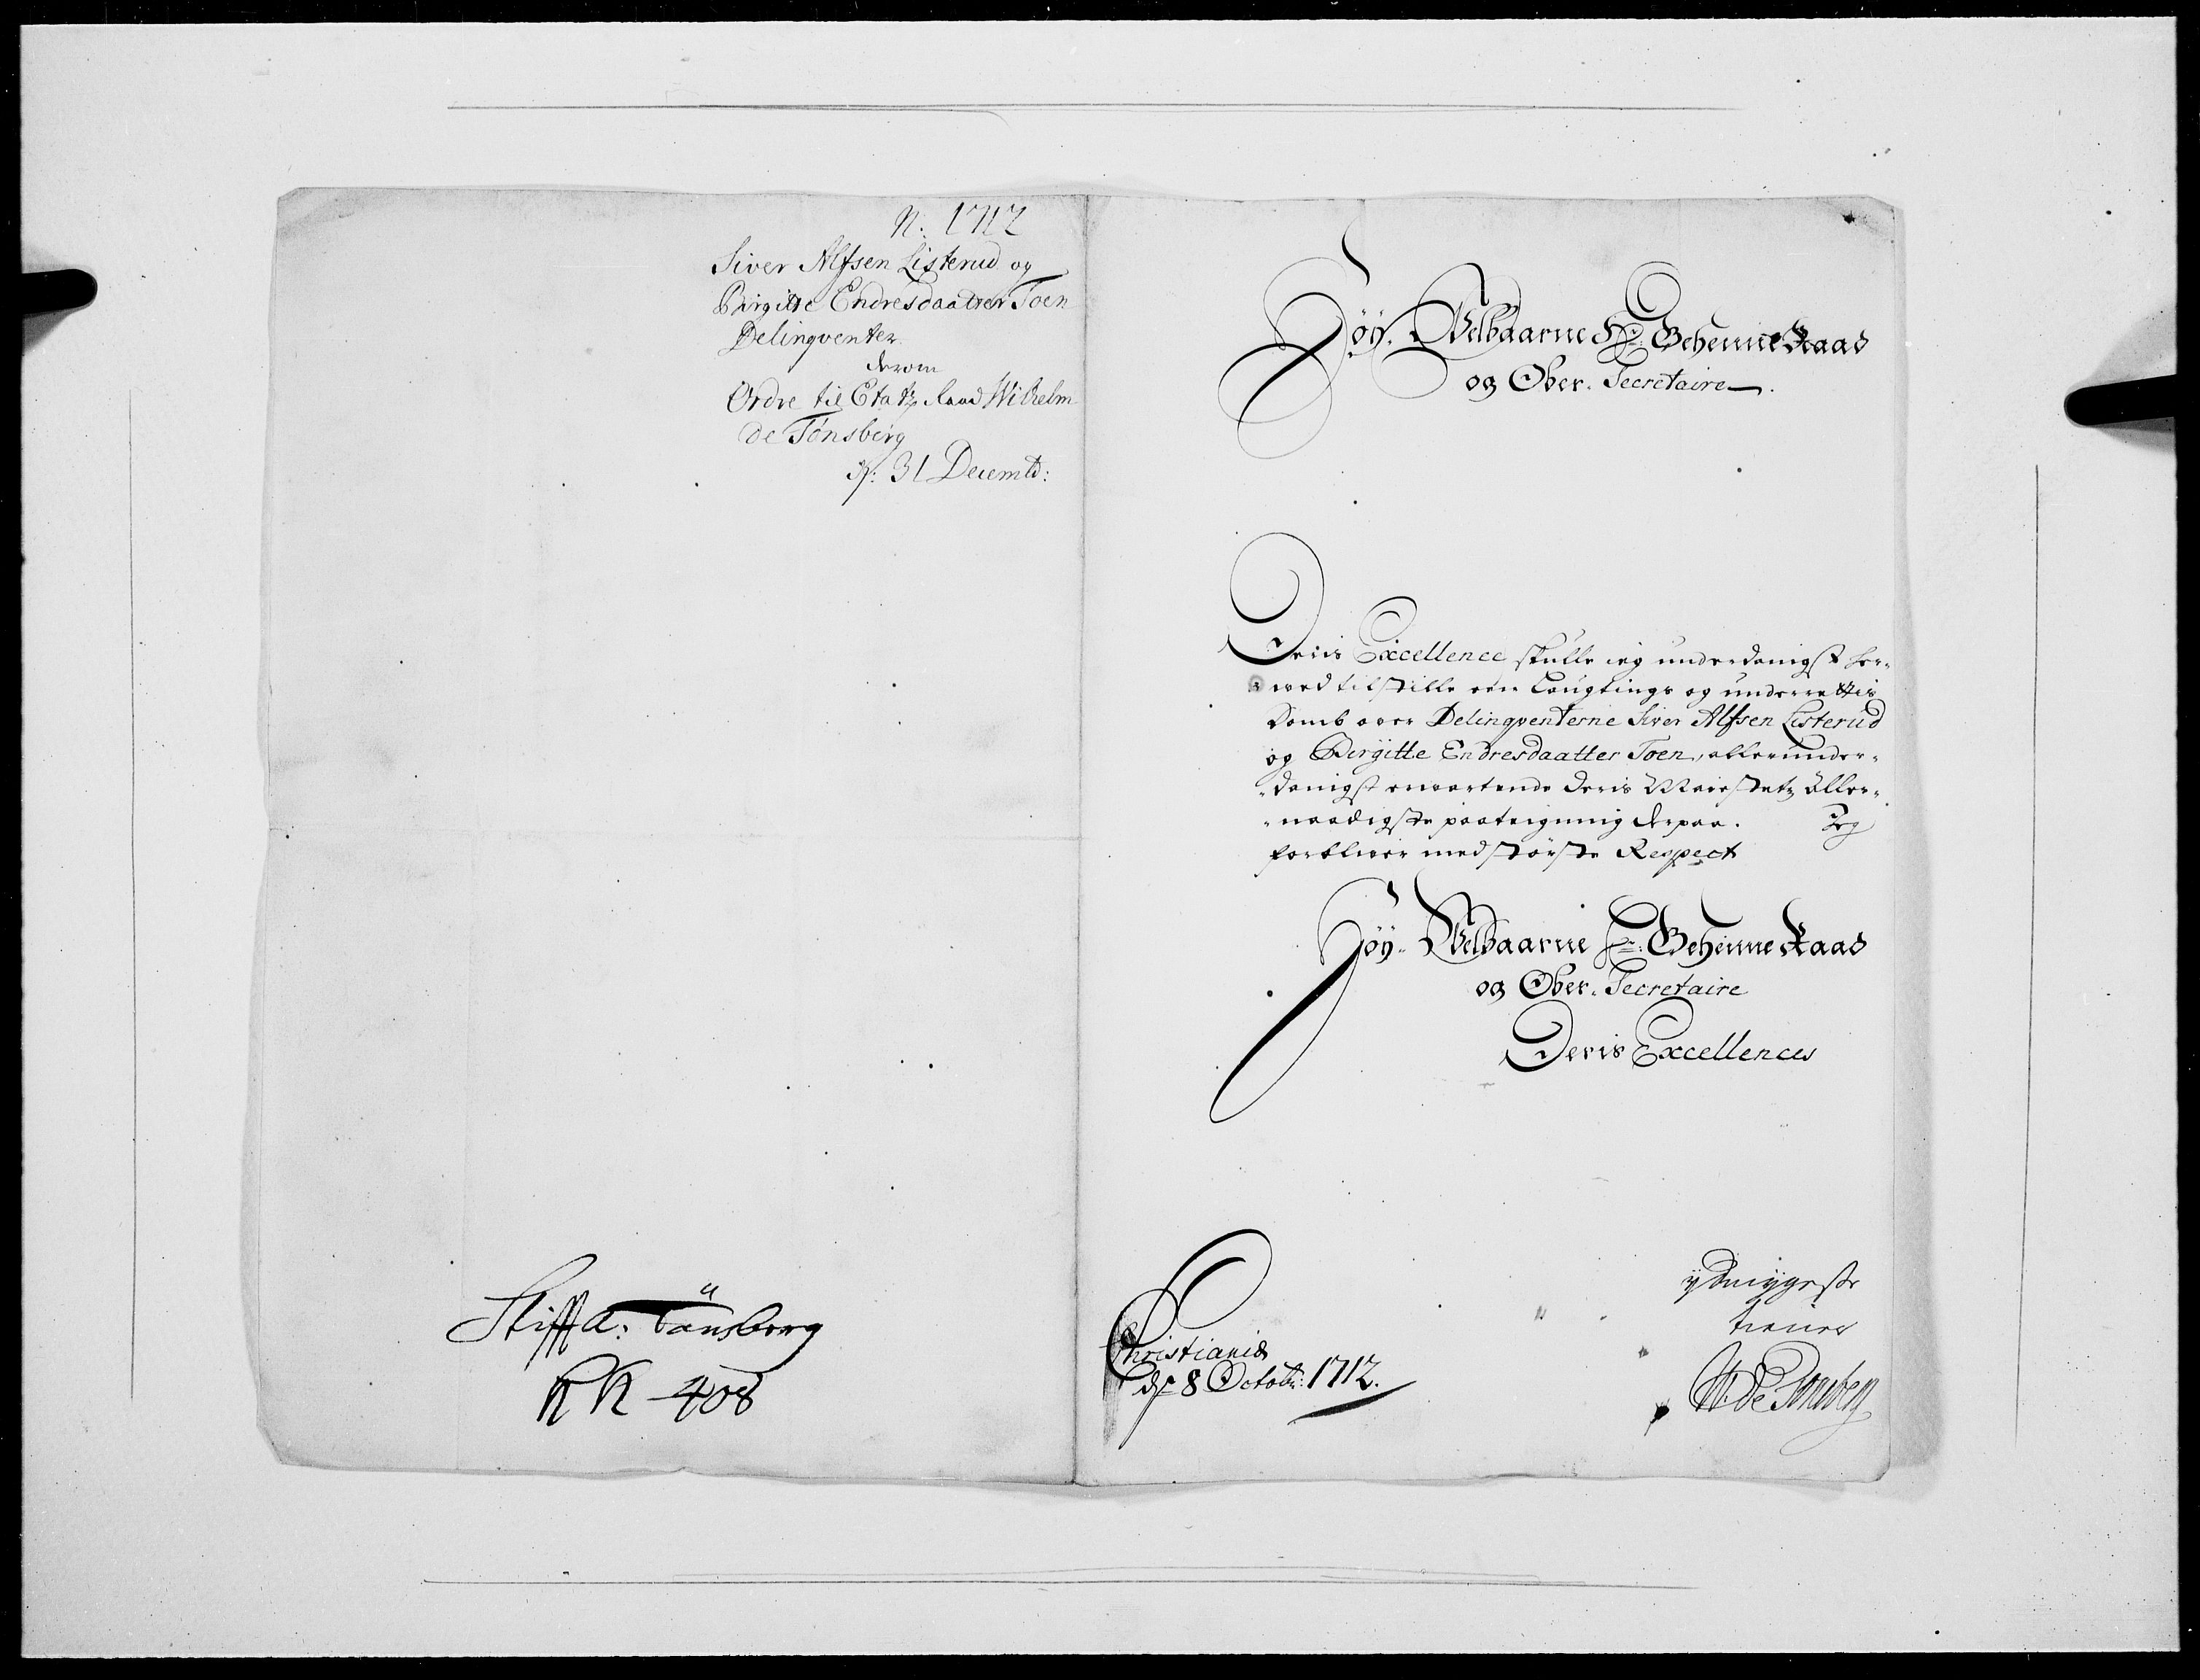 N. 1712
Siver Alfsen Listerud og
Birgitte Endresdaatter Toen
Delinqventer
derom
Ordre til Etatz Raad Wilhelm
de Tønsberg
dp: 31 Decemb:
Stiffta: Tönsberg
NN 408
Høy. Welbaarne Hr: Geheime Raad
og Ober. Secretaire.
Deris Excellence skulle ieg underdanigst her-
-ved tilstille een Laugtings og underrettis
Domb over Delinqventerne Siver Alfsen Listerud
og Birgitte Endresdaatter Toen, allerunder-
-danigst erwartende deris Maiestætz aller-
-naadigste paateigning derpaa. Jeg
forbliver med største Respect
Høy. Welbaarne Hr: Geheime Raad
og Ober. Secretaire
Deris Excellences
ydmygeste
tiener
W. de Tonsberg
Christiania
dp 8 Octobr: 1712.